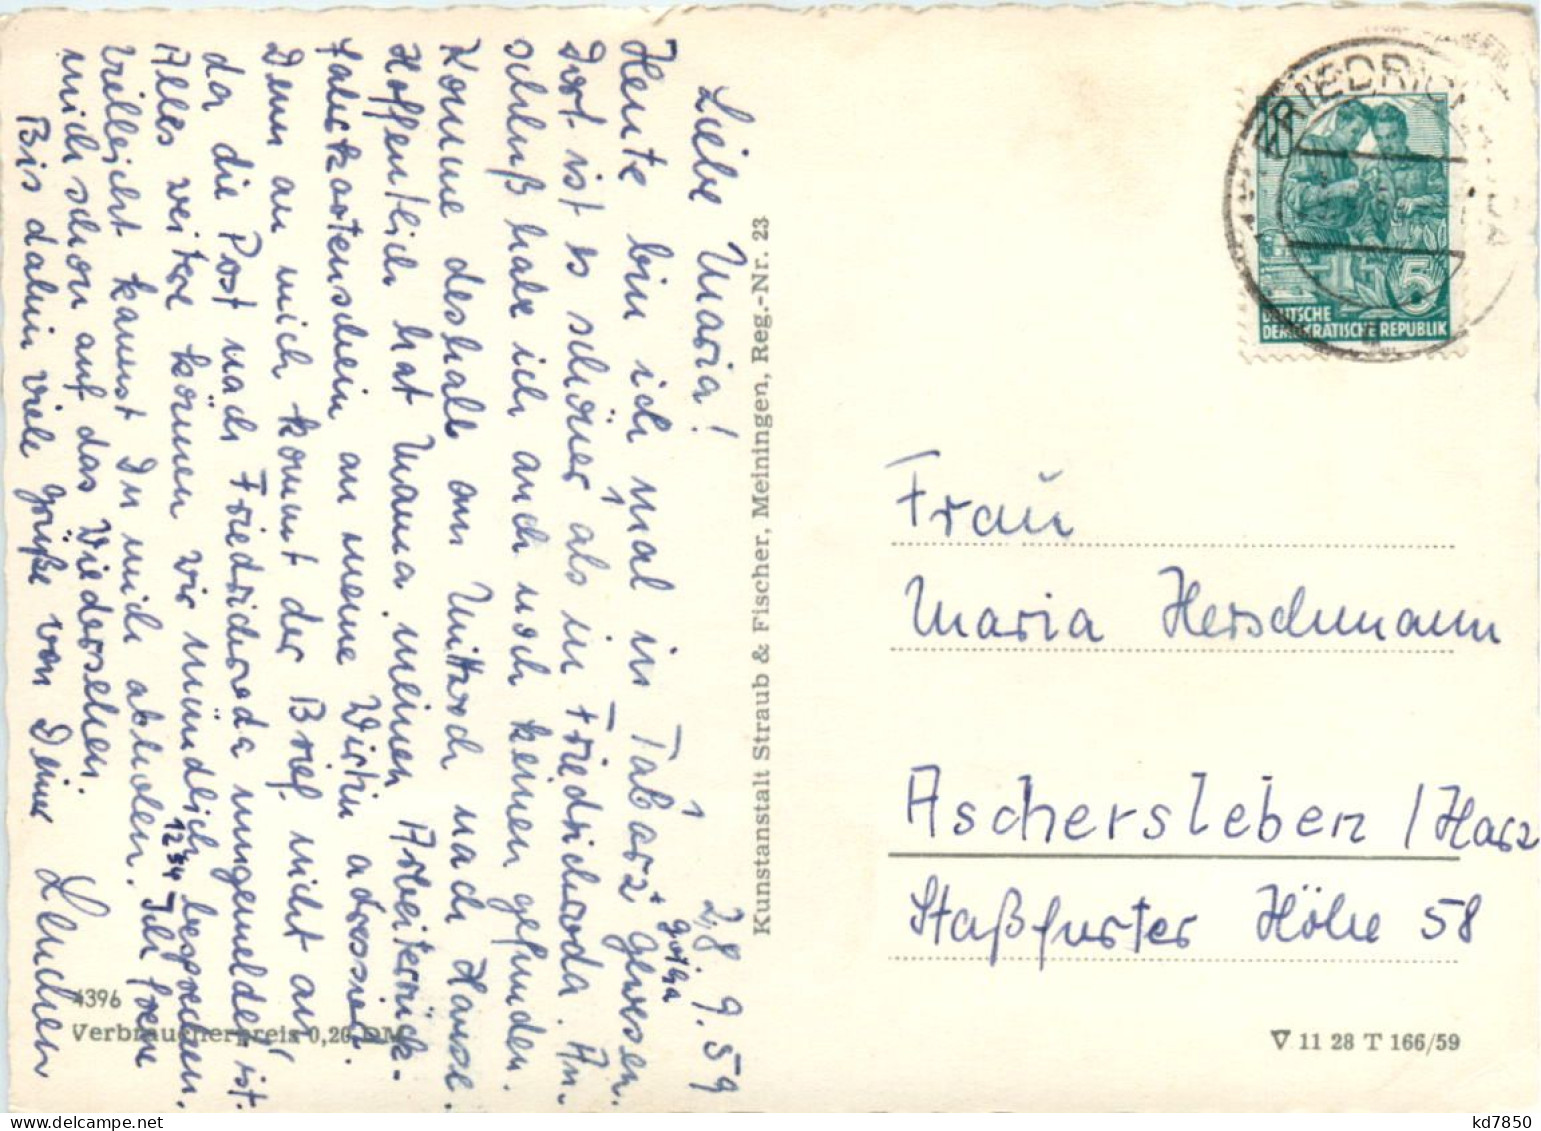 28. 9. 59
Liebe Maria!
Heute bin ich mal in Tabarz + Gotha gewesen.
Dort ist es schöner als in Friedrichroda. An-
schluß habe ich auch noch keinen gefunden.
Komme deshalb am Mittwoch nach Hause.
Hoffentlich hat Mama meinen Arbeiterrück-
fahrkartenschein an meine Wirtin adressiert.
Denn an mich kommt der Brief nicht an,
da die Post nach Friedrichroda umgemeldet ist.
Alles weitere können wir mündlich besprechen.
Vielleicht kannst Du mich abholen. 12 54 Ich freue
mich schon auf das Wiedersehen.
Bis dahin viele Grüße von Deiner Lenchen
4396
Verbraucherpreis 0,20 DM
Kunstanstalt Straub & Fischer, Meiningen, Reg.-Nr. 23
DEUTSCHE
DEMOKRATISCHE REPUBLIK
5
Frau
Maria Herschmann
Aschersleben / Harz
Staßfurter Höhe 58
V 11 28 T 166/59
kd7850